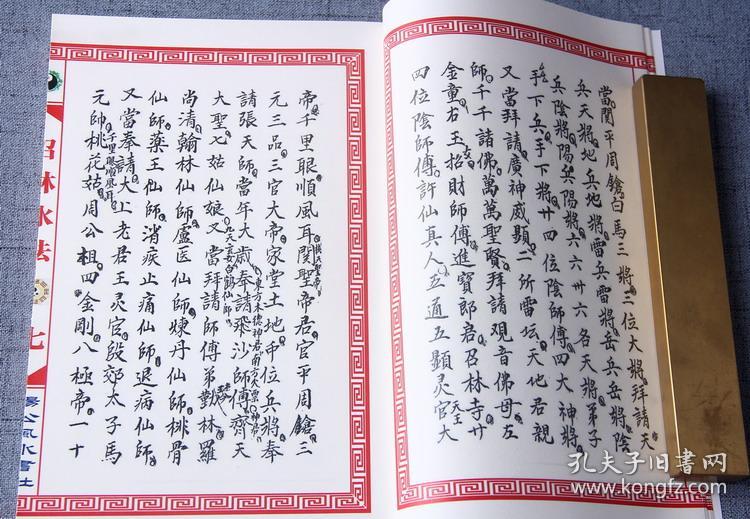 當関平周鎗白馬三將三位大將拜請天
兵天將地兵地將雷兵雷將岳兵岳將陰
兵陰將陽兵陽將六六卅六名天將弟子
手下兵手下將廿四位陰師傅四大神將
又當拜請廣神威顯二所雷坛天地君親
師千千諸佛萬萬聖賢拜請观音佛母左
金童右王招財師傅進寳郎君召林寺廿
四位陰師傅許仙真人五通五顯灵官大
帝千里眼順風耳関聖帝君官平周鎗三
元三品三官大帝家堂土地中位兵將奉
請張天師當年大歲奉請飛沙師傅齊天
大聖七姑仙娘又當拜請師傅弟勤林羅
尚清翰林仙師盧医仙師煉丹仙師桃骨
仙師藥王仙師消疾止痛仙師退病仙師
又當奉請大上老君王灵官殷郊太子馬
元帥桃花姑周公相四金剛八極帝一十
千里眼順風耳
九天玄女白鶴仙師
召林水法
七
楊公風水書社
孔夫子旧書网
www.kongfz.com